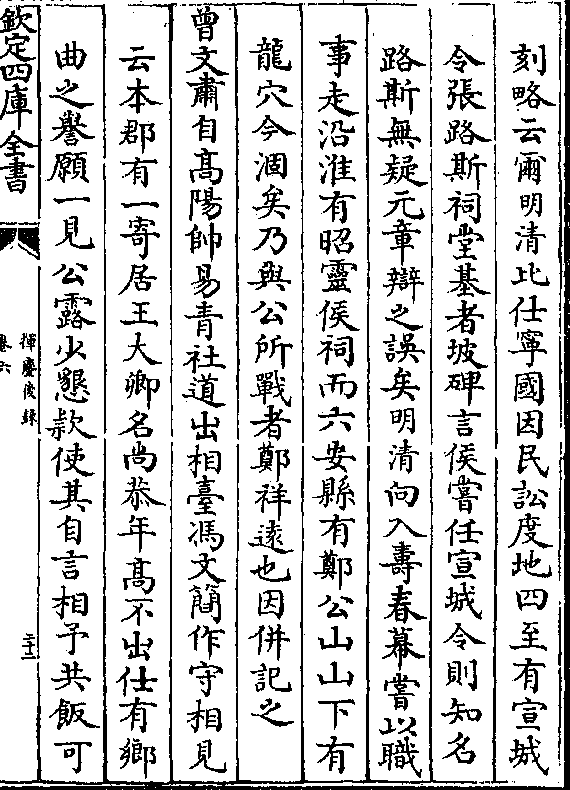 刻略云爾明清比仕寧國因民訟度地四至有宣城
令張路斯祠堂基者坡碑言侯嘗任宣城令則知名
路斯無疑元章辯之誤矣明清向入壽春幕嘗以職
事走沿淮有昭靈侯祠而六安縣有鄭公山山下有
龍穴今涸矣乃與公所戰者鄭祥遠也因併記之
曾文肅自高陽帥易青社道出相臺馮文簡作守相見
云本郡有一寄居王大卿名尚恭年高不出仕有鄉
曲之譽願一見公露少懇款使其自言相予共飯可
欽定四庫全書
揮麈後錄
卷六
二十三